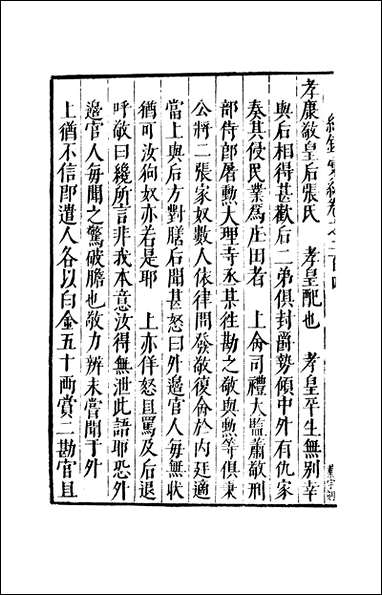 紀錄彙編卷之二百四
孝康敬皇后張氏　孝皇配也　孝皇平生無別幸
與后相得甚歡后二弟俱封爵勢傾中外有仇家
奏其侵民業爲庄田者　上命司禮大監蕭敬刑
部侍郎屠勳大理寺丞某徃勘之敬與勳等俱秉
公將二張家奴數人依律問發敬復命於內廷適
當上與后方對膳后聞甚怒曰外邊官人每無狀
猶可汝狗奴亦若是耶　上亦佯怒且罵及后退
呼敬曰纔所言非我本意汝得無泄此語耶恐外
邊官人每聞之驚破膽也敬力辨未嘗聞于外
上猶不信即遣人各以白金五十两賞二勘官且